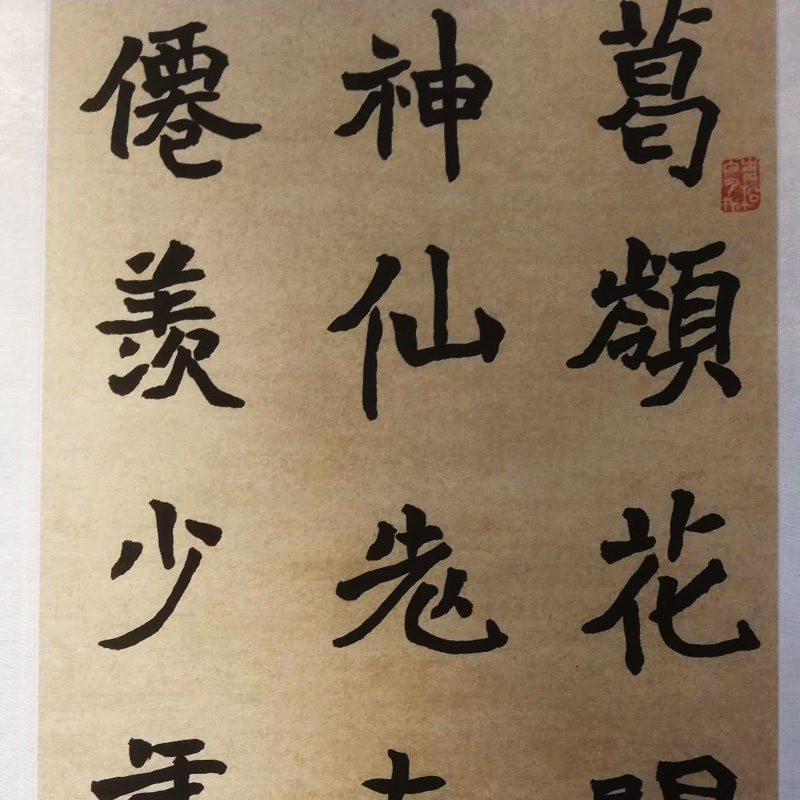 葛嶺花
神仙老
僊羨少